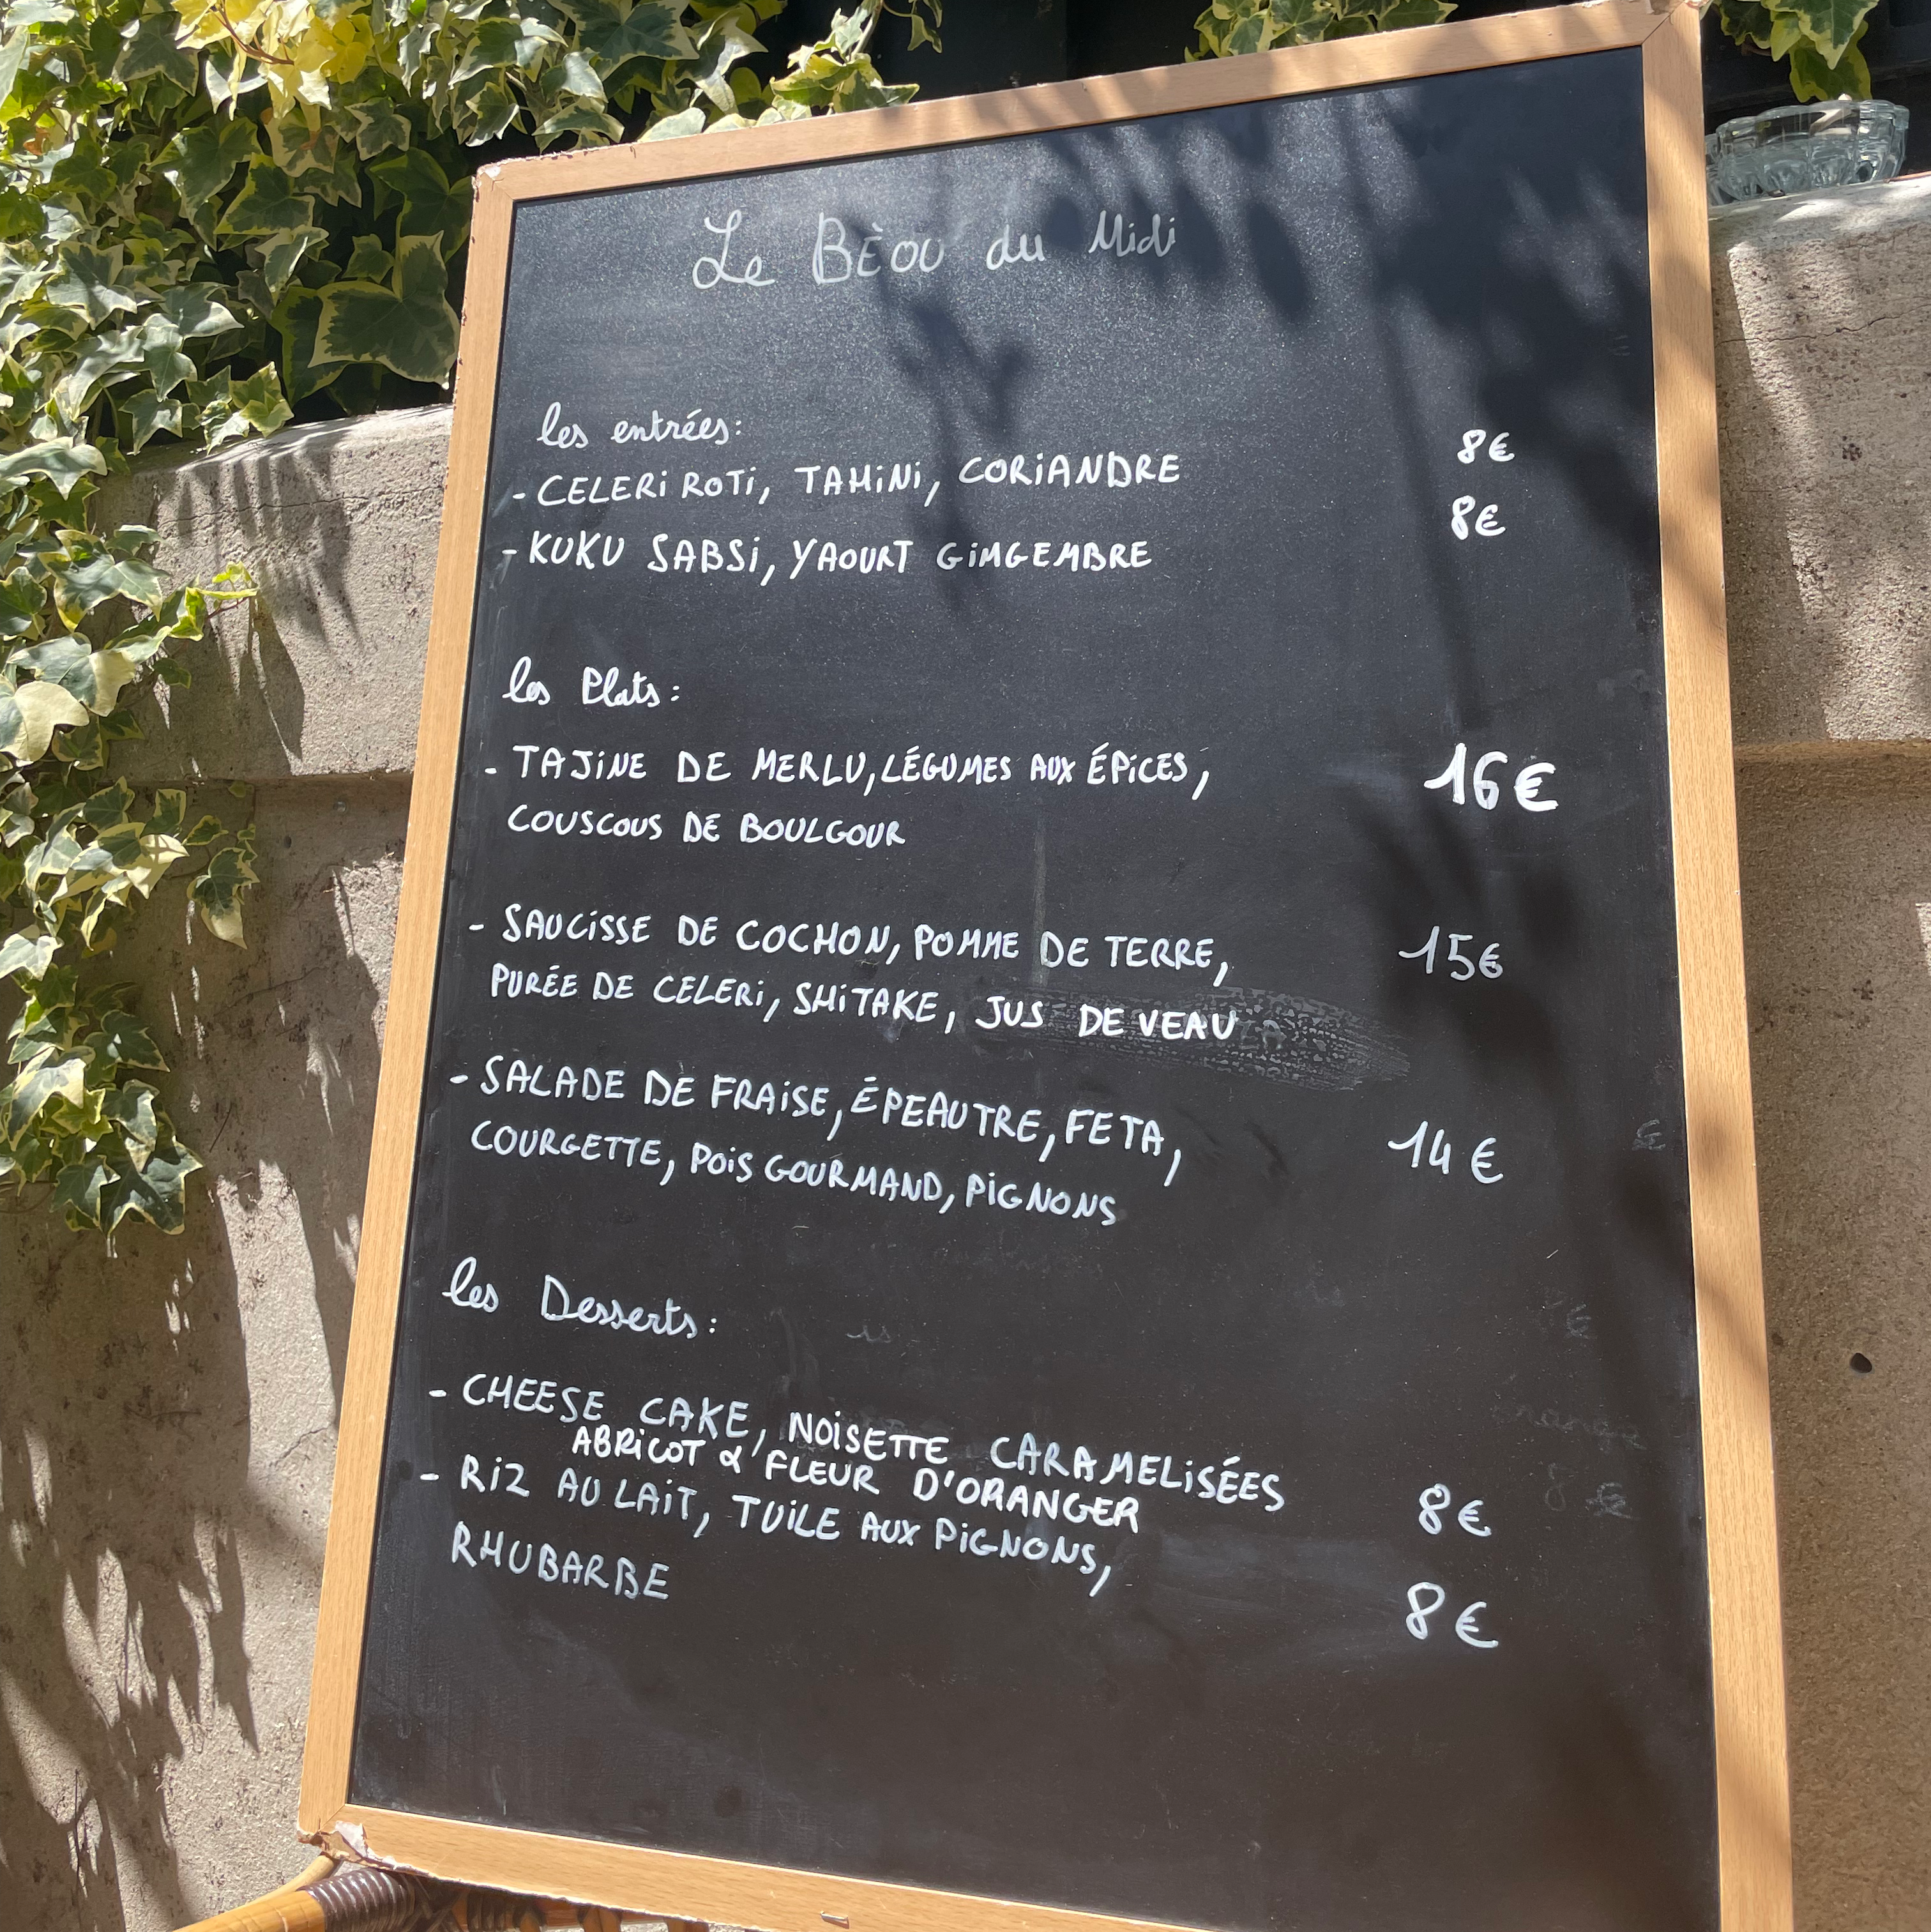 Le BÈOU du Midi
les entrées:
- CELERI ROTI, TAHINI, CORIANDRE 8€
- KUKU SABSI, YAOURT GIMGEMBRE 8€
les Plats:
- TAJINE DE MERLU, LÉGUMES AUX ÉPICES, 16€
COUSCOUS DE BOULGOUR
- SAUCISSE DE COCHON, POMME DE TERRE, 15€
PURÉE DE CELERI, SHITAKE, JUS DE VEAU
- SALADE DE FRAISE, ÉPEAUTRE, FETA, 14€
COURGETTE, POIS GOURMAND, PIGNONS
les Desserts:
- CHEESE CAKE, NOISETTE CARAMELISÉES
ABRICOT & FLEUR D'ORANGER 8€
- RIZ AU LAIT, TUILE AUX PIGNONS,
RHUBARBE 8€